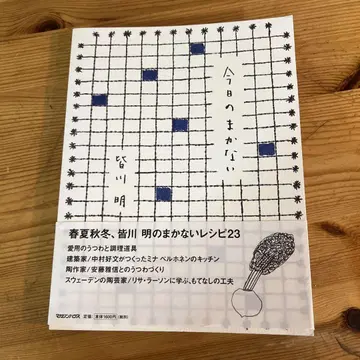 今日のまかない
皆川 明
春夏秋冬、皆川 明のまかないレシピ23
愛用のうつわと調理道具
建築家/中村好文がつくったミナ ペルホネンのキッチン
陶作家/安藤雅信とのうつわづくり
スウェーデンの陶芸家/リサ・ラーソンに学ぶ、もてなしの工夫
マガジンハウス 定価:本体1600円(税別)